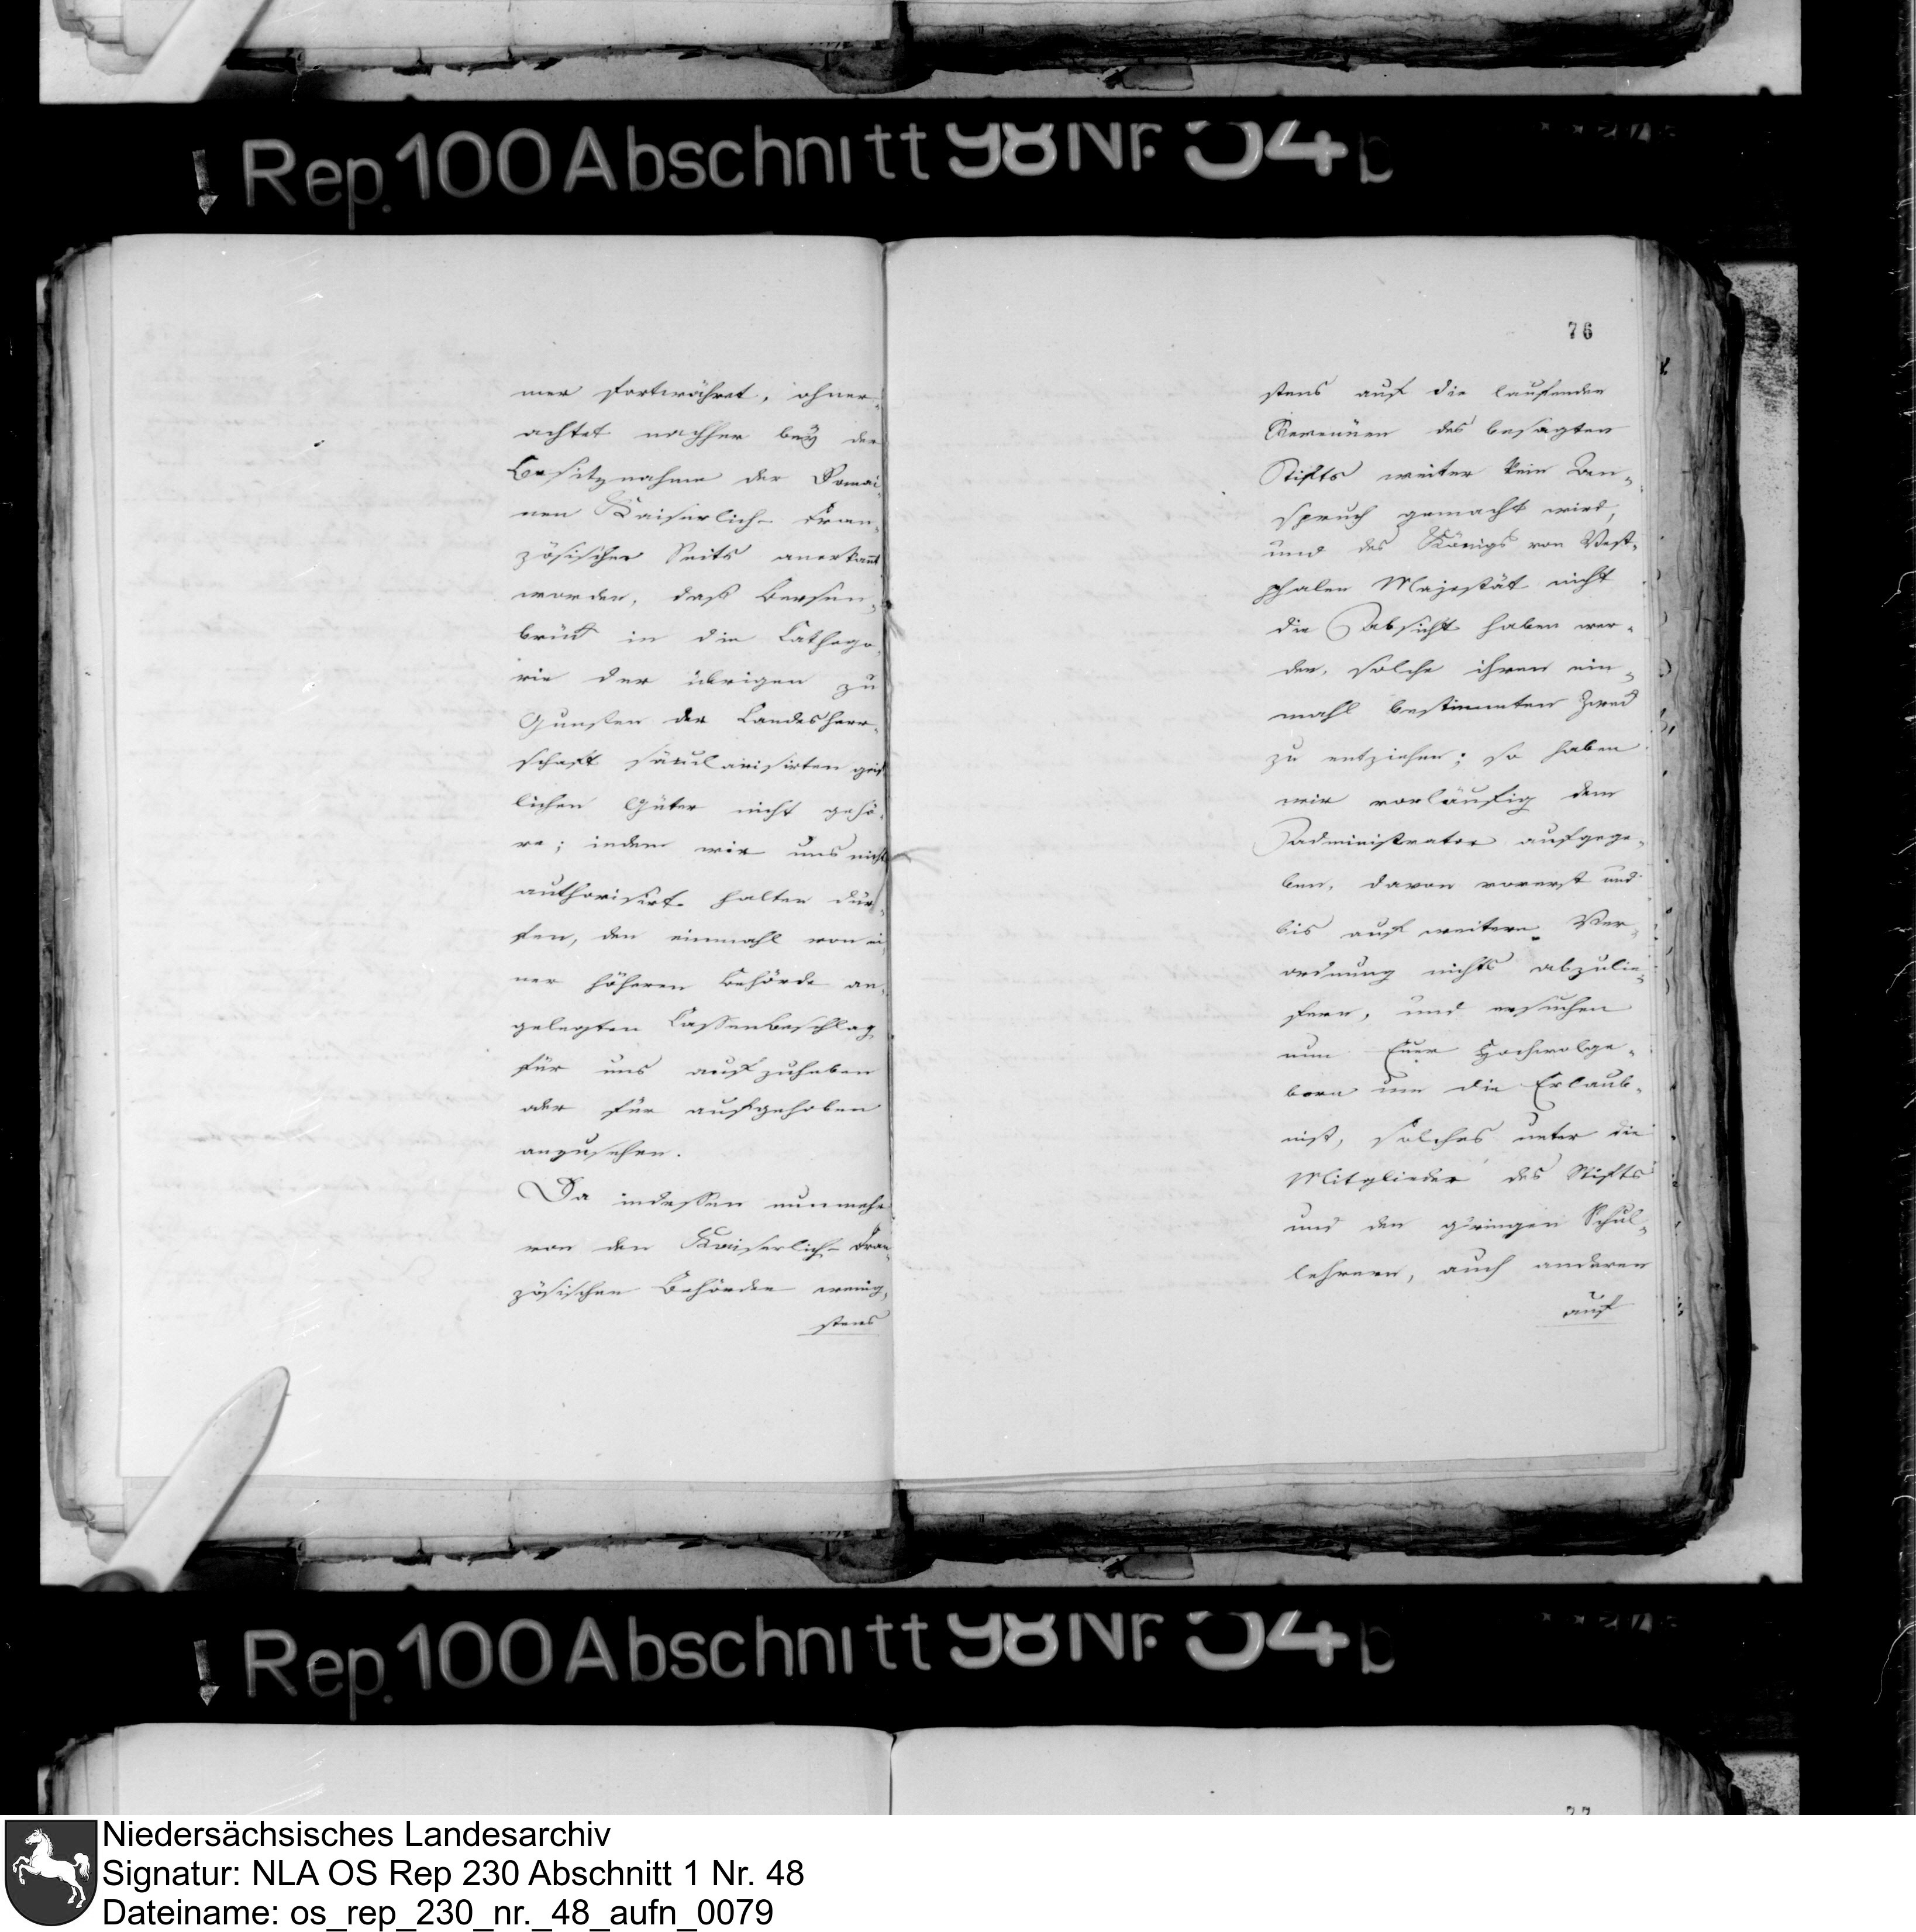 Rep. 100 Abschnitt 98 Nr. 54 b
mer fortwähret, ohner-
achtet nachher bey der
Besitznahme der Domai-
nen Kaiserlich- Fran-
zösischer Seits anerkannt
worden, daß Bersen-
brück in die Cathego-
rie der übrigen zu
Gunsten der Landesherr-
schaft säcularisirten geist-
lichen Güter nicht gehö-
re; indem wir uns nicht
authorisirt halten dür-
fen, den einmahl von ei-
ner höheren Behörde an-
gelegten Cassenbeschlag
für uns aufzuheben
oder für aufgehoben
anzusehen.
Da indessen nunmehr
von den Kaiserlich- Fran-
zösischen Behörden wenig-
stens
76
stens auf die laufenden
Revenüen des besagten
Stifts weiter kein An-
spruch gemacht wird,
und des Königs von West-
phalen Majestät nicht
die Absicht haben wer-
den, solche ihren ein-
mahl bestimmten Zweck
zu entziehen; so haben
wir vorläufig dem
Administrator aufgege-
ben, davon vorerst und
bis auf weitere Ver-
ordnung nichts abzulie-
fern, und ersuchen
nun Euer Hochwolge-
born um die Erlaub-
niß, solches unter die
Mitglieder des Stifts
und den geringen Schul-
lehrern, auch anderen
auf
Rep. 100 Abschnitt 98 Nr. 54 b
77
Niedersächsisches Landesarchiv
Signatur: NLA OS Rep 230 Abschnitt 1 Nr. 48
Dateiname: os_rep_230_nr._48_aufn_0079